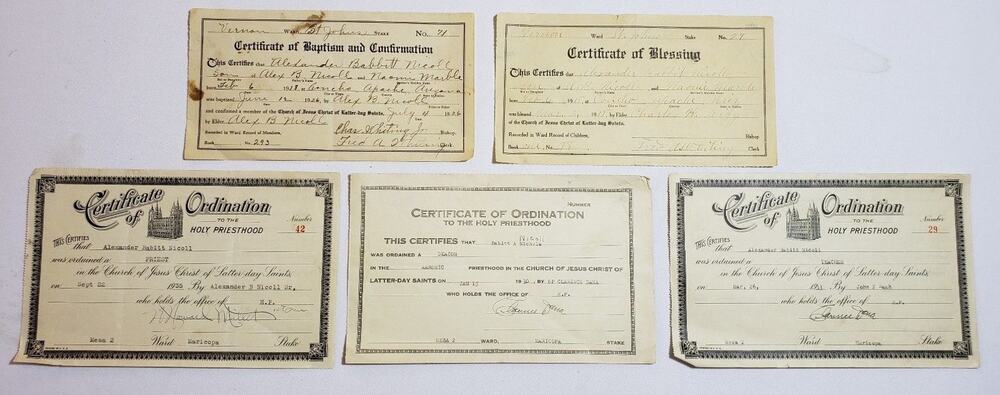 Vernon Ward St Johns Stake No. 71
Certificate of Baptism and Confirmation
This Certifies that Alexander Babbitt Nicoll
Son of Alex B. Nicoll and Naomi Marble
born Feb 6 1918 at Concho Apache Arizona
was baptised June 12 1926 by Alex B. Nicoll
and confirmed a member of the Church of Jesus Christ of Latter-day Saints July 4 1926
by Elder Alex B Nicoll
Chas. Whiting Jr Bishop.
Recorded in Ward Record of Members.
Book No. 293 Fred A. Whiting Clerk.
Vernon Ward St Johns Stake No. 27
Certificate of Blessing
This Certifies that Alexander Nicoll
was blessed by Elder
of the Church of Jesus Christ of Latter-day Saints.
Recorded in Ward Record of Children.
Bishop
Book Fred A Whiting Clerk
Certificate
of Ordination
TO THE
HOLY PRIESTHOOD
Number
42
THIS CERTIFIES
that Alexander Babitt Nicoll
was ordained a PRIEST
in the Church of Jesus Christ of Latter-day Saints
on Sept 22 1935 By Alexander B Nicoll Sr.
who holds the office of H.P.
Mesa 2 Ward Maricopa Stake
NUMBER
CERTIFICATE OF ORDINATION
TO THE HOLY PRIESTHOOD
Nicoll
THIS CERTIFIES THAT Babitt A
WAS ORDAINED A DEACON
IN THE AARONIC PRIESTHOOD IN THE CHURCH OF JESUS CHRIST OF
LATTER-DAY SAINTS ON JAN 15 1930 BY BP CLARENCE DANA
WHO HOLDS THE OFFICE OF H.P.
Clarence Dana
MESA 2 WARD, MARICOPA STAKE
Certificate
of Ordination
TO THE
HOLY PRIESTHOOD
Number
29
THIS CERTIFIES
that Alexander Babitt Nicoll
was ordained a TEACHER
in the Church of Jesus Christ of Latter-day Saints
on Mar. 26, 1931 By John
who holds the office of H.P.
Clarence Dana
Mesa 2 Ward Maricopa Stake